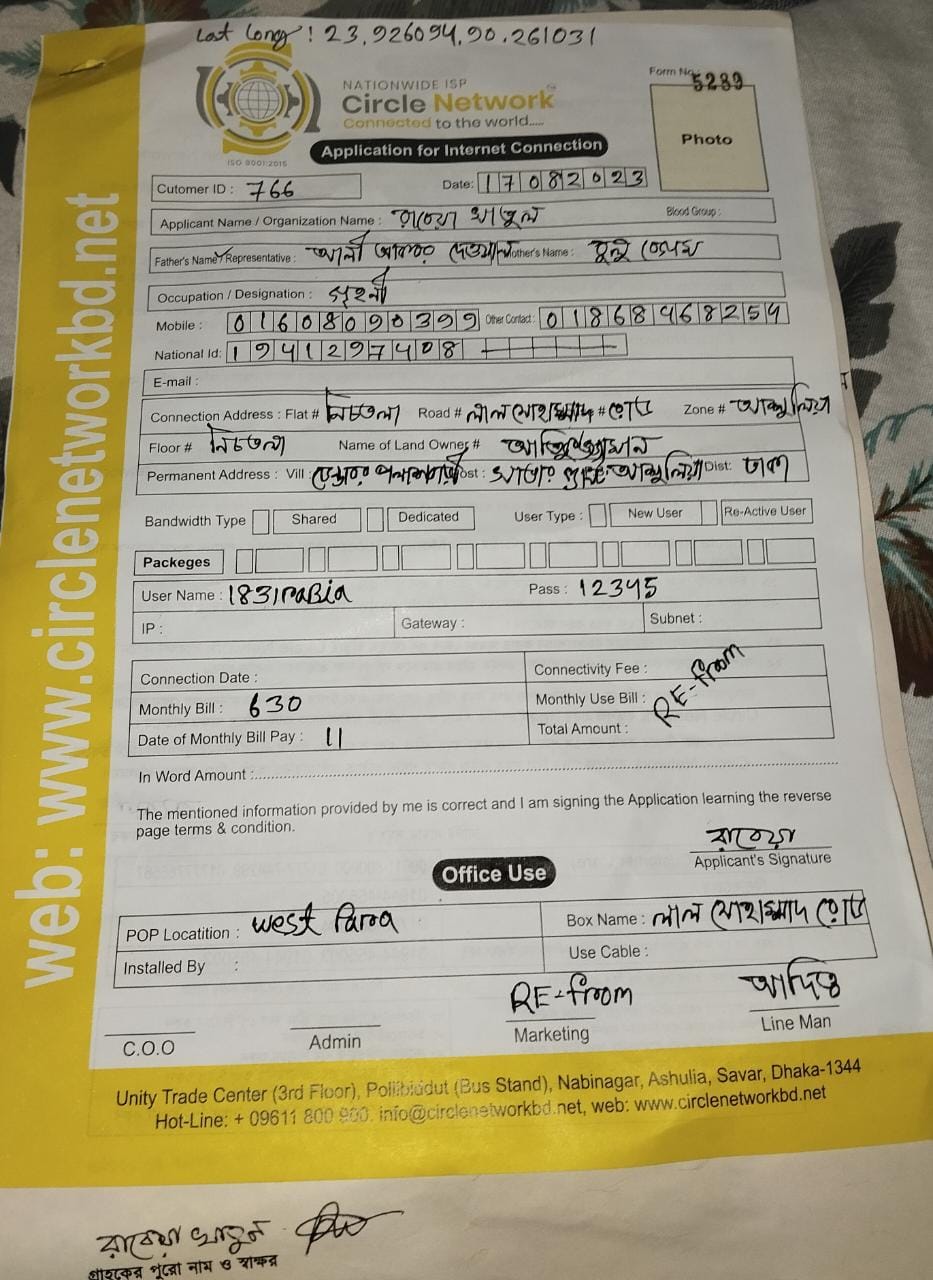 Lat Long: 23.926094,90.261031
NATIONWIDE ISP
Circle Network
Connected to the world.....
ISO 9001:2015
Form No: 5289
Photo
Application for Internet Connection
Cutomer ID : 766 Date: 17082023
Applicant Name / Organization Name : রাবেয়া খাতুন Blood Group :
Father's Name / Representative : আলী আকবর দেওয়ান Mother's Name : বুলু বেগম
Occupation / Designation : গৃহিনী
Mobile : 01608090399 Other Contact : 01868468254
National Id: 1941297408
E-mail :
Connection Address : Flat # নিচতলা Road # লাল মোহাম্মাদ # রোড Zone # আশুলিয়া
Floor # নিচতলা Name of Land Owner #
Permanent Address : Vill : Post : সাভার আশুলিয়া Dist: ঢাকা
Bandwidth Type Shared Dedicated User Type : New User Re-Active User
Packeges
User Name : 1831rabia Pass : 12345
IP : Gateway : Subnet :
Connection Date : Connectivity Fee :
Monthly Bill : 630 Monthly Use Bill : RE-from
Date of Monthly Bill Pay : 11 Total Amount :
In Word Amount :
The mentioned information provided by me is correct and I am signing the Application learning the reverse
page terms & condition.
রাবেয়া
Applicant's Signature
Office Use
POP Locatition : west Para Box Name : লাল মোহাম্মাদ রোড
Installed By : Use Cable :
RE-from
C.O.O Admin Marketing Line Man
Unity Trade Center (3rd Floor), Pollibiddut (Bus Stand), Nabinagar, Ashulia, Savar, Dhaka-1344
Hot-Line: + 09611 800 900. info@circlenetworkbd.net, web: www.circlenetworkbd.net
web: www.circlenetworkbd.net
রাবেয়া খাতুন
গ্রাহকের পুরো নাম ও স্বাক্ষর